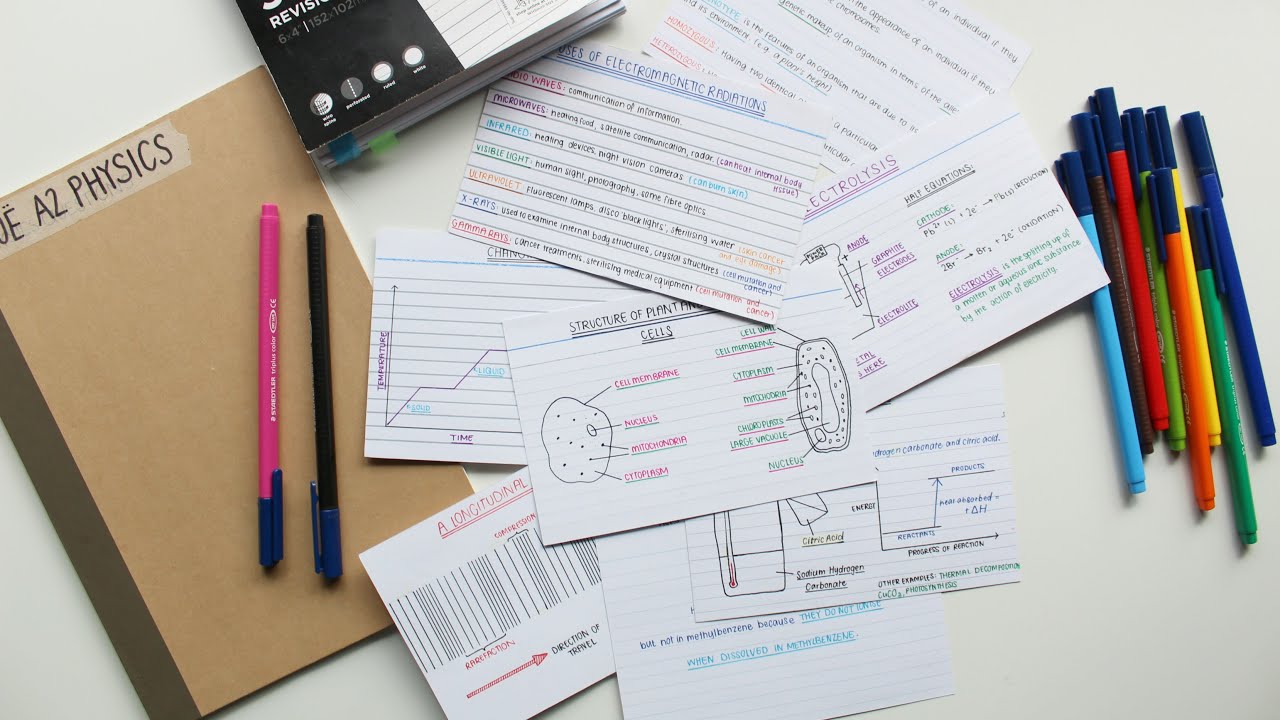 REVISION
6x4" | 152x102m
wiro
spine
perforated
ruled
white
OË A2 PHYSICS
STAEDTLER triplus color
CE
USES OF ELECTROMAGNETIC RADIATIONS
RADIO WAVES: communication of information.
MICROWAVES: heating food, satellite communication, radar (can heat internal body
tissue)
INFRARED: heating devices, night vision cameras (can burn skin)
VISIBLE LIGHT: human sight, photography, some fibre optics
ULTRAVIOLET: Fluorescent lamps, disco 'black lights', sterilising water (skin cancer
and eye damage)
X-RAYS: used to examine internal body structures, crystal structures (cell mutation and
cancer)
GAMMA RAYS: cancer treatments, sterilising medical equipment (cell mutation and
cancer)
the appearance of an individual if they
of chromosomes.
genetic makeup of an organism in terms of the
the features of an organism that are due to
and its environment. (e.g. a plant's height)
HOMOZYGOUS: Having two identical
particular
ECTROLYSIS
HALF EQUATIONS:
CATHODE:
Pb²⁺(l) + 2e⁻ → Pb(s) (REDUCTION)
ANODE:
2Br⁻ → Br₂ + 2e⁻ (OXIDATION)
ELECTROLYSIS is the splitting up of
a molten or aqueous ionic substance
by the action of electricity.
ANODE
GRAPHITE
ELECTRODES
ELECTROLYTE
TAL
S HERE
CHAN
TEMPERATURE
SOLID
LIQUID
TIME
STRUCTURE OF PLANT AN
CELLS
CELL MEMBRANE
NUCLEUS
MITOCHONDRIA
CYTOPLASM
CELL WALL
CELL MEMBRANE
CYTOPLASM
MITOCHODRIA
CHLOROPLASTS
LARGE VACUOLE
NUCLEUS
A LONGITUDINAL
COMPRESSION
RAREFACTION
DIRECTION OF
TRAVEL
drogen carbonate and citric acid.
Citric Acid
Sodium Hydrogen
Carbonate
ENERGY
PRODUCTS
heat absorbed =
+ΔH
REACTANTS
PROGRESS OF REACTION
OTHER EXAMPLES: THERMAL DECOMPOSITION
CuCO₃, PHOTOSYNTHESIS
but not in methylbenzene because THEY DO NOT IONISE
WHEN DISSOLVED IN METHYLBENZENE.